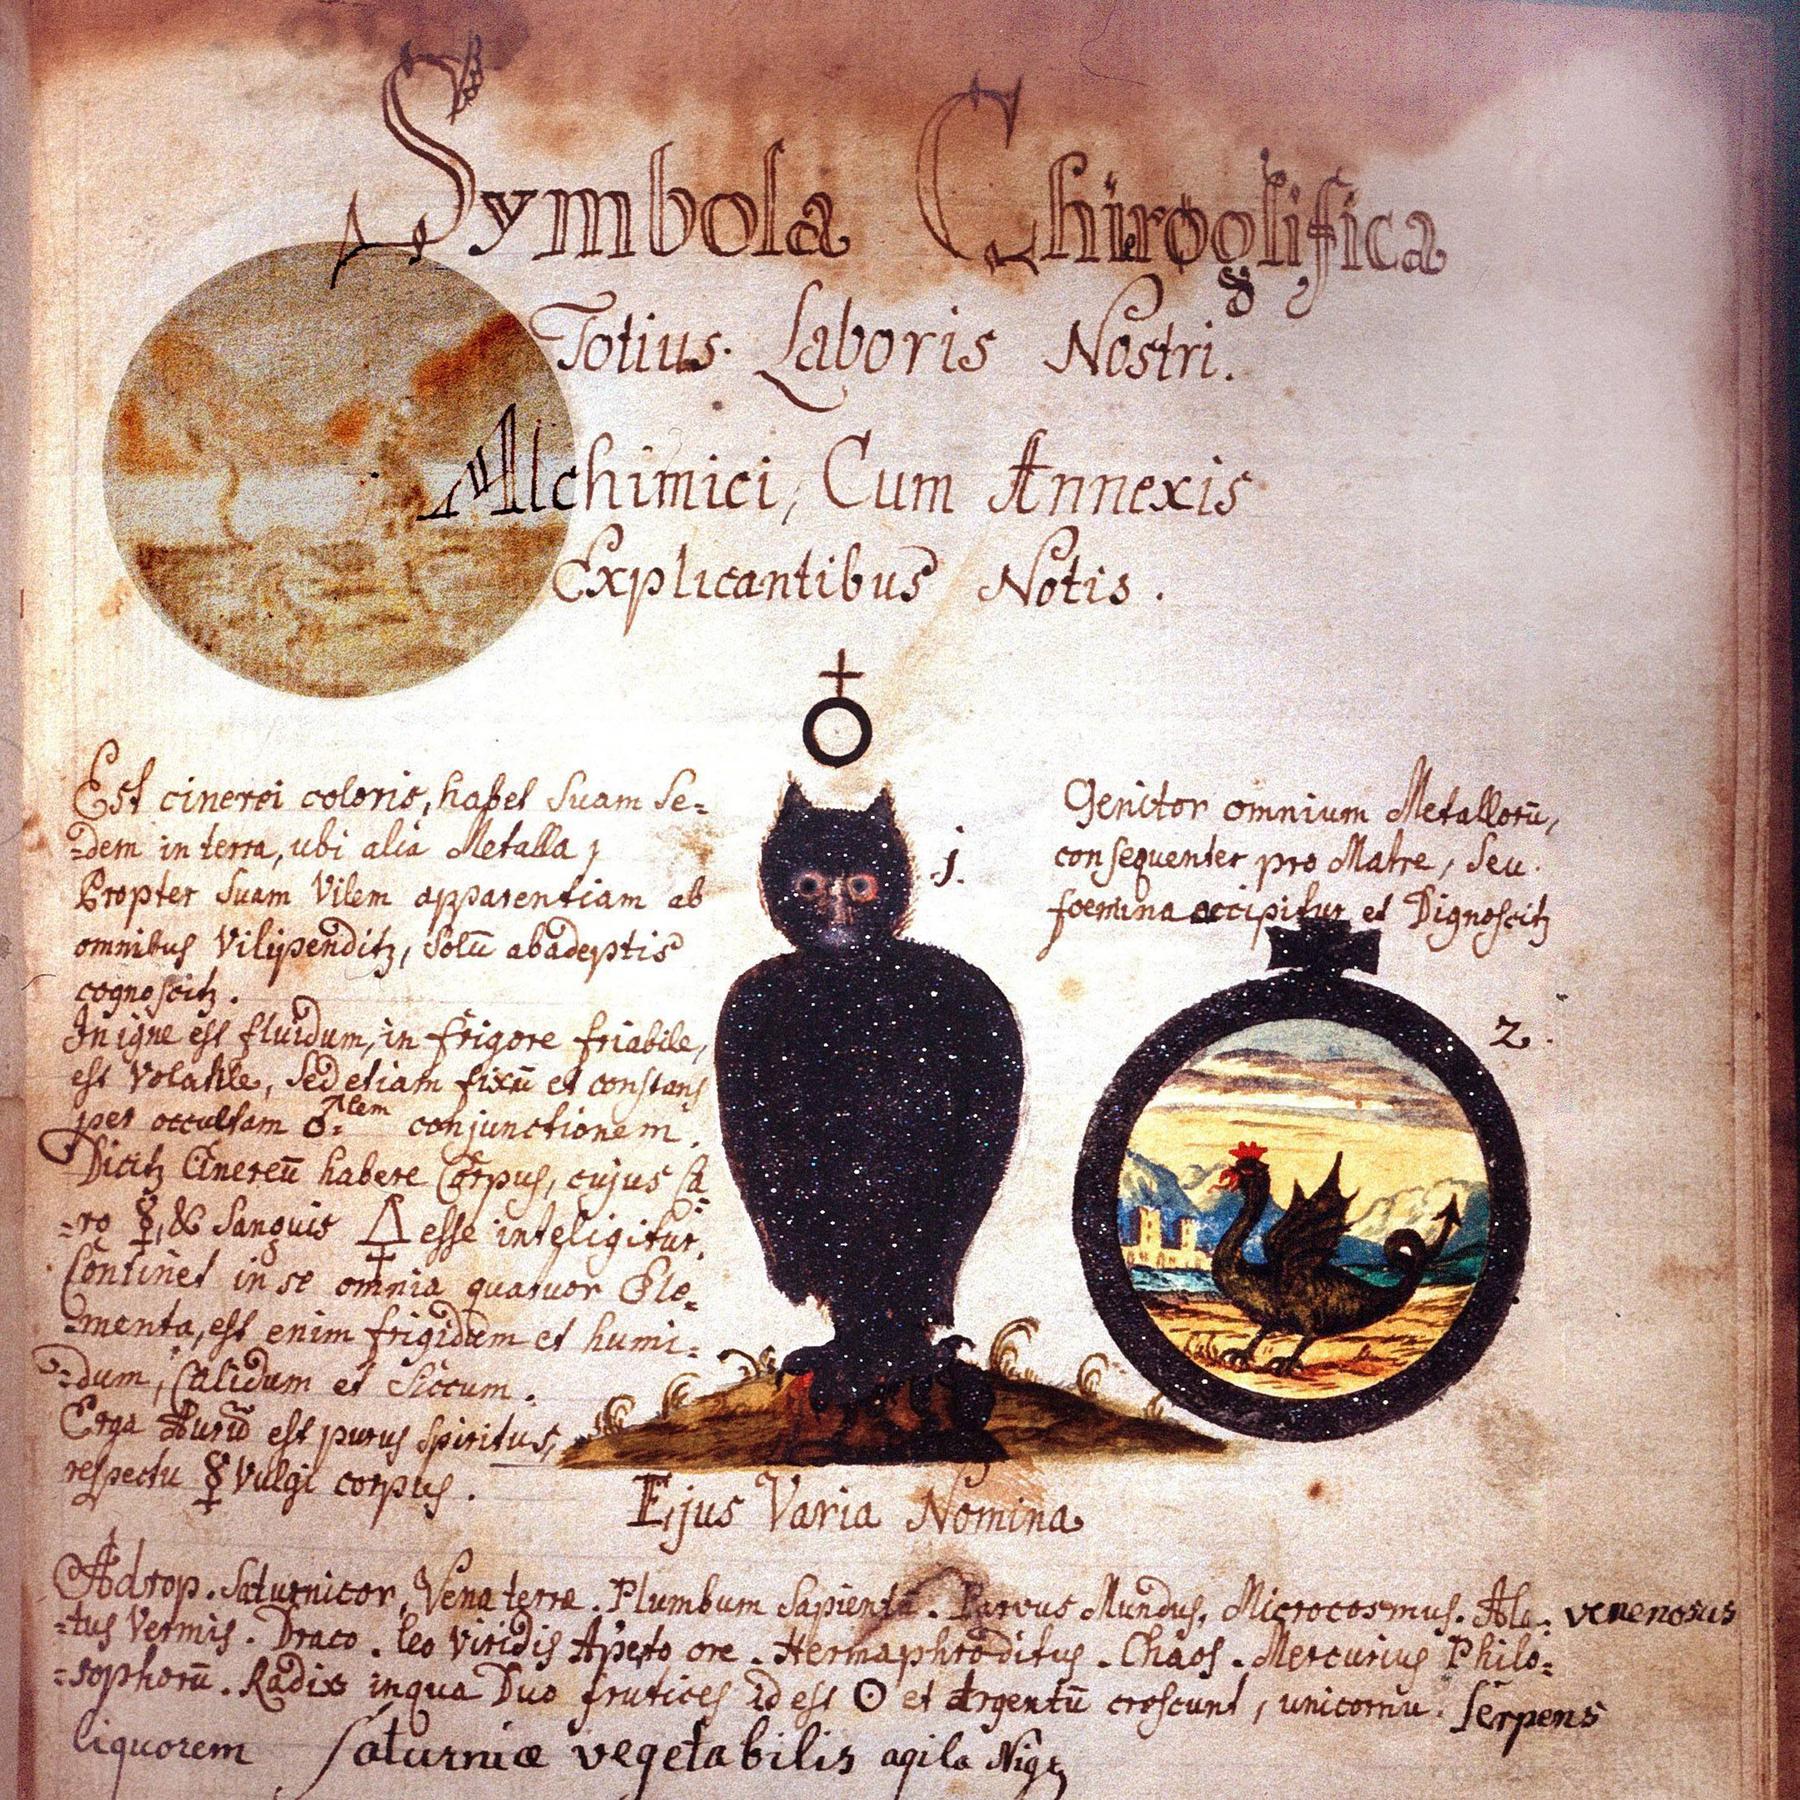 Symbola Chiroglifica
Totius Laboris Nostri.
Alchimici, Cum Annexis
Explicantibus Notis.
Est cinerei coloris, habet suam se=
=dem in terra, ubi alia Metalla;
Propter suam Vilem apparentiam ab
omnibus Vilipenditz, solū ab adeptis
cognoscitz.
In igne est fluidum, in frigore friabile,
est Volatile, sed etiam fixū et constans
per occultam ♂:Alem conjunctionem.
Dicitz Cinereū habere Corpus, cujus Ca=
=ro ☿, & Sanguis 🜍 esse inteligitur.
Continet in se omnia quatuor Ele=
=menta, est enim frigidum et humi=
=dum, Calidum et Siccum.
Erga Aurū est purus spiritus,
respectu ☿ Vulgi corpus.
♁
.1.
Genitor omnium Metallorū,
consequenter pro Matre, seu
foemina accipitur et Dignoscitz
2.
Ejus Varia Nomina
Adrop. Saturnicor, Vena terræ. Plumbum Sapientū. Parvus Mundus, Microcosmus. Ala= venenosus
=tus Vermis. Draco. Leo Viridis Aperto ore. Hermaphroditus. Chaos. Mercurius Philo=
=sophorū. Radix in qua Duo frutices id est ☉ et Argentū crescunt, unicornu. Serpens
liquorem Saturniæ vegetabilis aqila Nigr